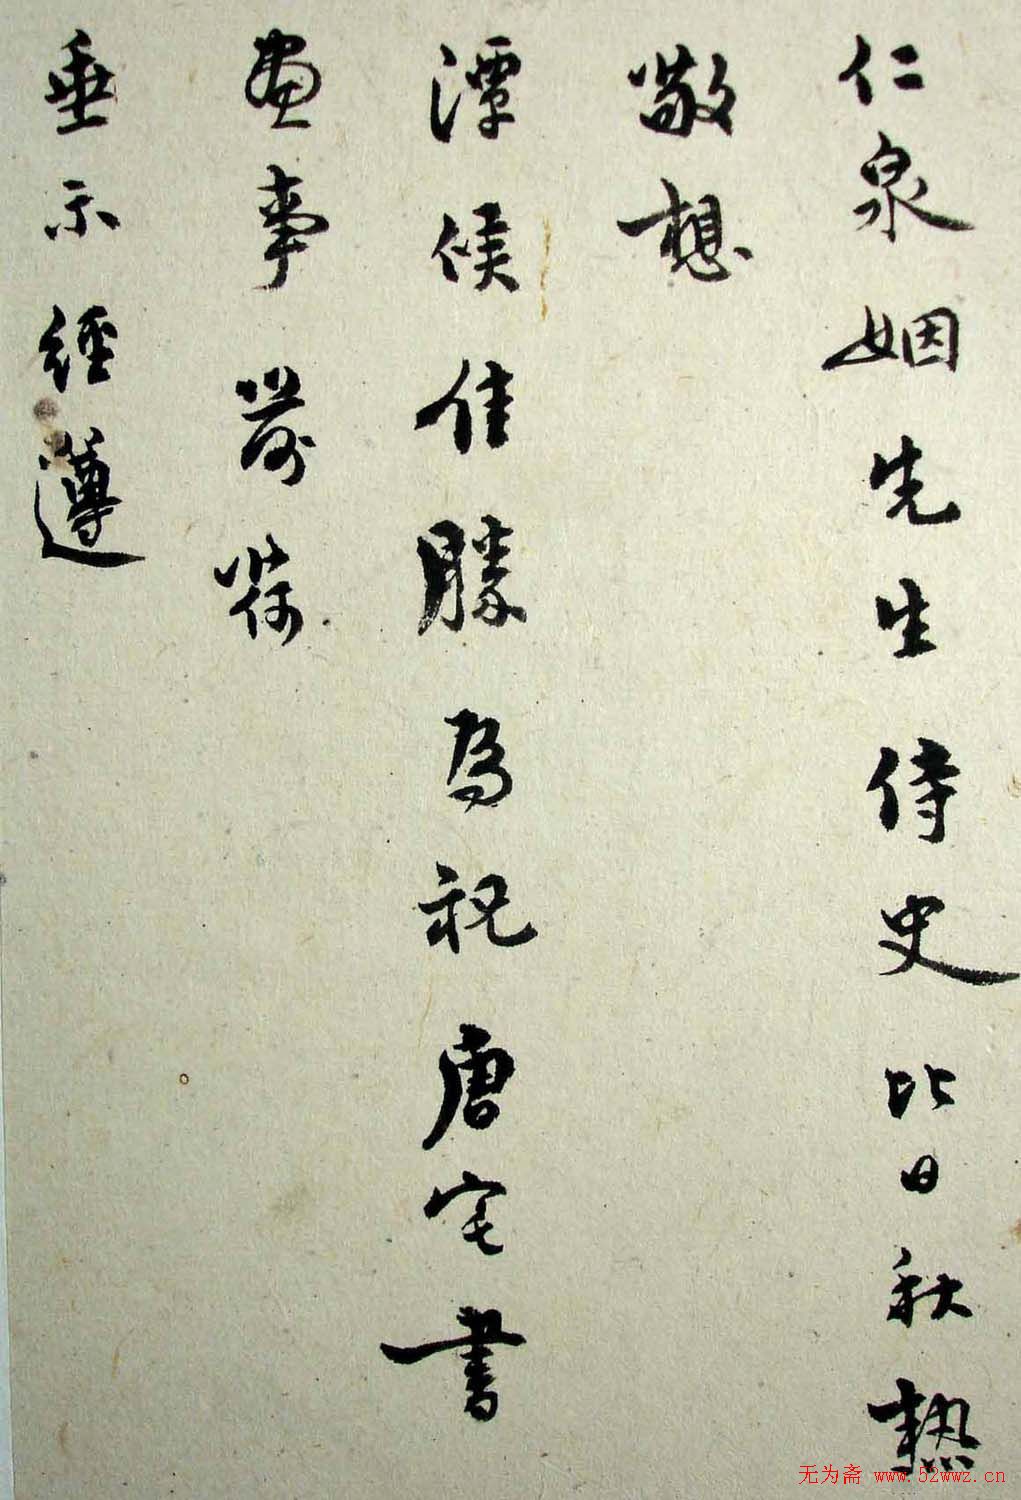 仁泉姻先生侍史比日秋熱
敬想
潭候佳勝為祝唐宅書
畫事前荷
垂示經遵
无为斋 www.52wwz.cn